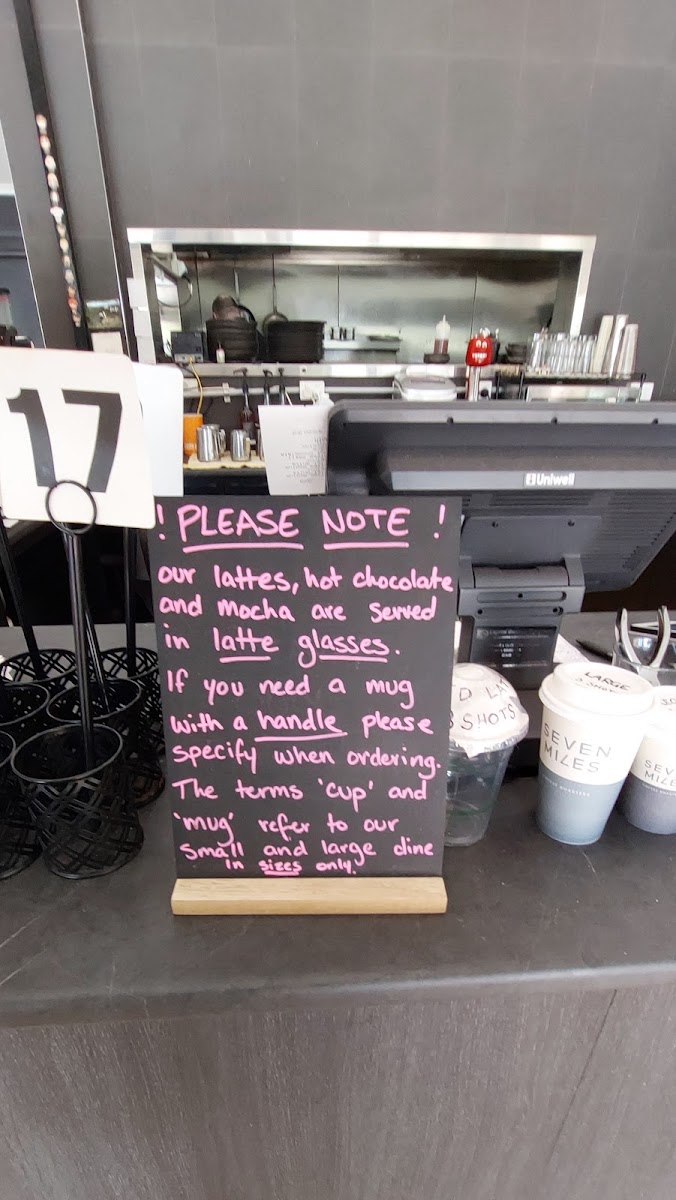 17
Uniwell
! PLEASE NOTE !
our lattes, hot chocolate
and mocha are served
in latte glasses.
If you need a mug
with a handle please
specify when ordering.
The terms 'cup' and
'mug' refer to our
small and large dine
in sizes only.
D LA
SHOTS
LARGE
SEVEN
MILES
COFFEE ROASTERS
SEVEN
MILE